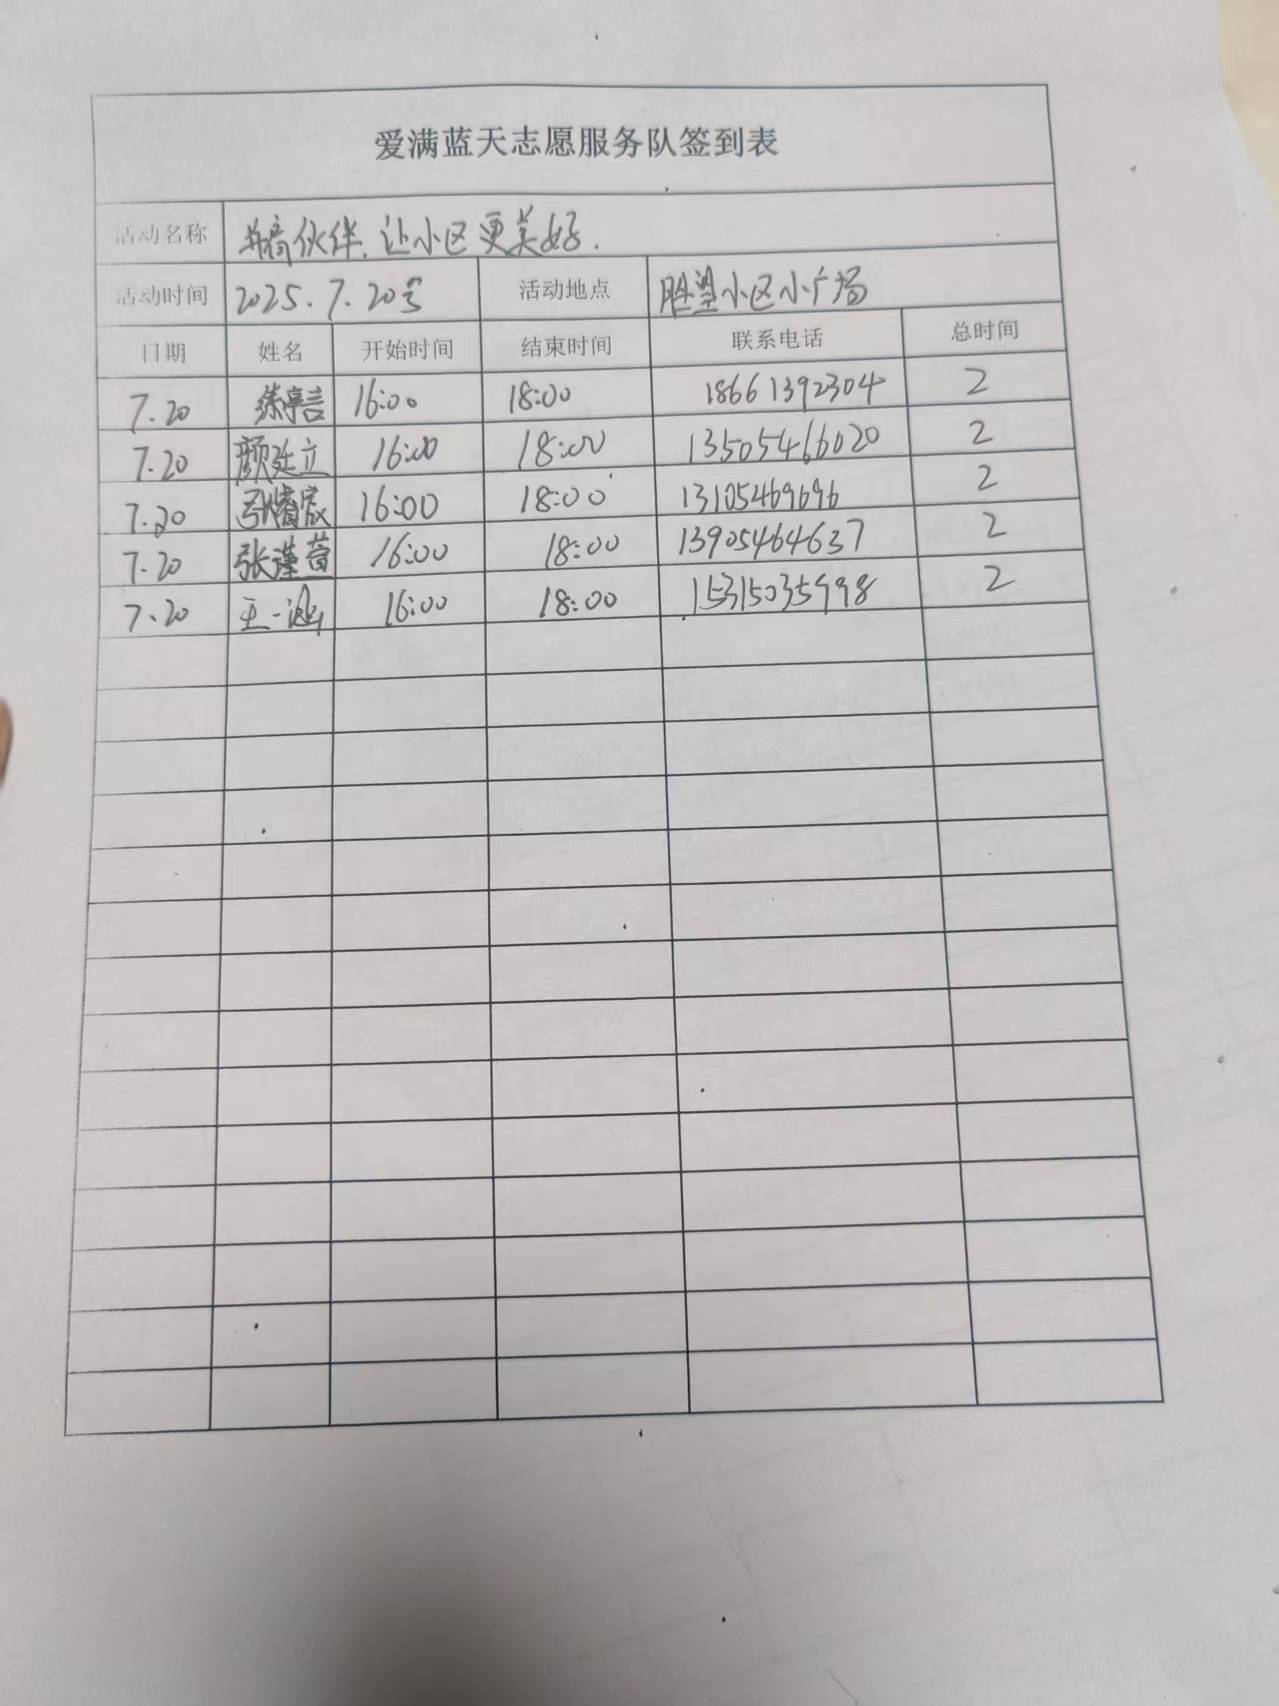 爱满蓝天志愿服务队签到表
活动名称 伙伴,让小区更美好.
活动时间 2025.7.20号 活动地点 胜望小区小广场
日期 姓名 开始时间 结束时间 联系电话 总时间
7.20 16:00 18:00 18661392304 2
7.20 颜廷立 16:00 18:00 13505466020 2
7.20 张睿宸 16:00 18:00 13105469696 2
7.20 张谨萱 16:00 18:00 13905464637 2
7.20 王一涵 16:00 18:00 15315035998 2